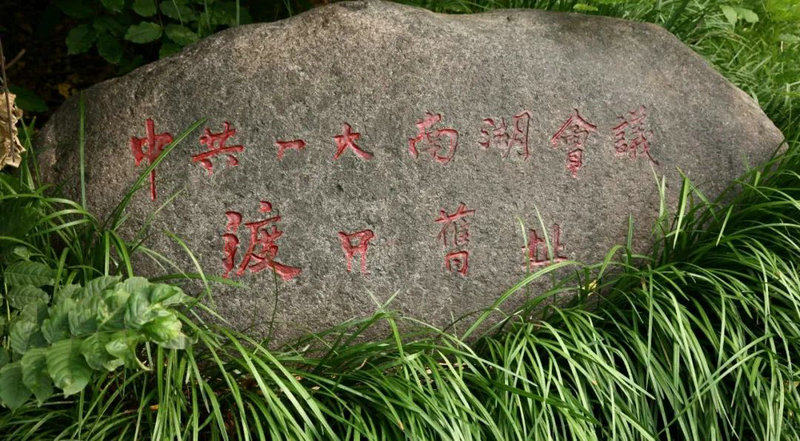 中共一大南湖會議
渡口舊址